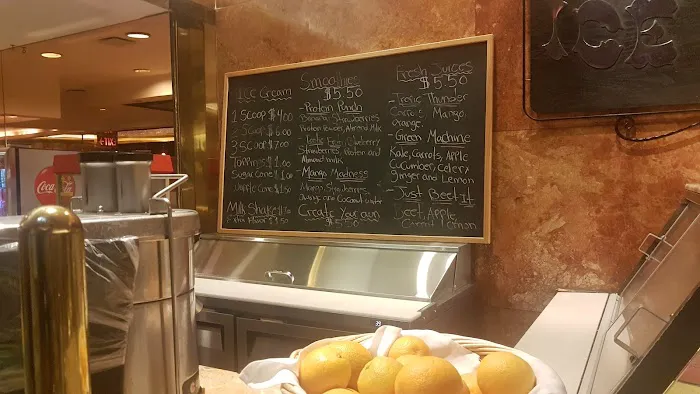 Ice Cream
1 Scoop $4.00
2 Scoop $6.00
3 Scoop $7.00
Toppings $1.00
Sugar cone $1.00
Waffle Cone $1.50
Milk Shake
Extra Flavor $1.50
Smoothies
$5.50
-Protein Punch
Banana, Strawberries
Protein Powder, Almond Milk
Strawberries, Protein and
Almond milk
-Mango Madness
Mango, Strawberries,
and Coconut water
Create Your own
$5.50
Fresh Juices
$5.50
-Tropic Thunder
Carrots, Mango,
orange
-Green Machine
Kale, Carrots, Apple
Cucumber, Celery
Ginger and Lemon
-Just Beet It
Beet, Apple,
Carrot, Lemon
ICE
Coca
39